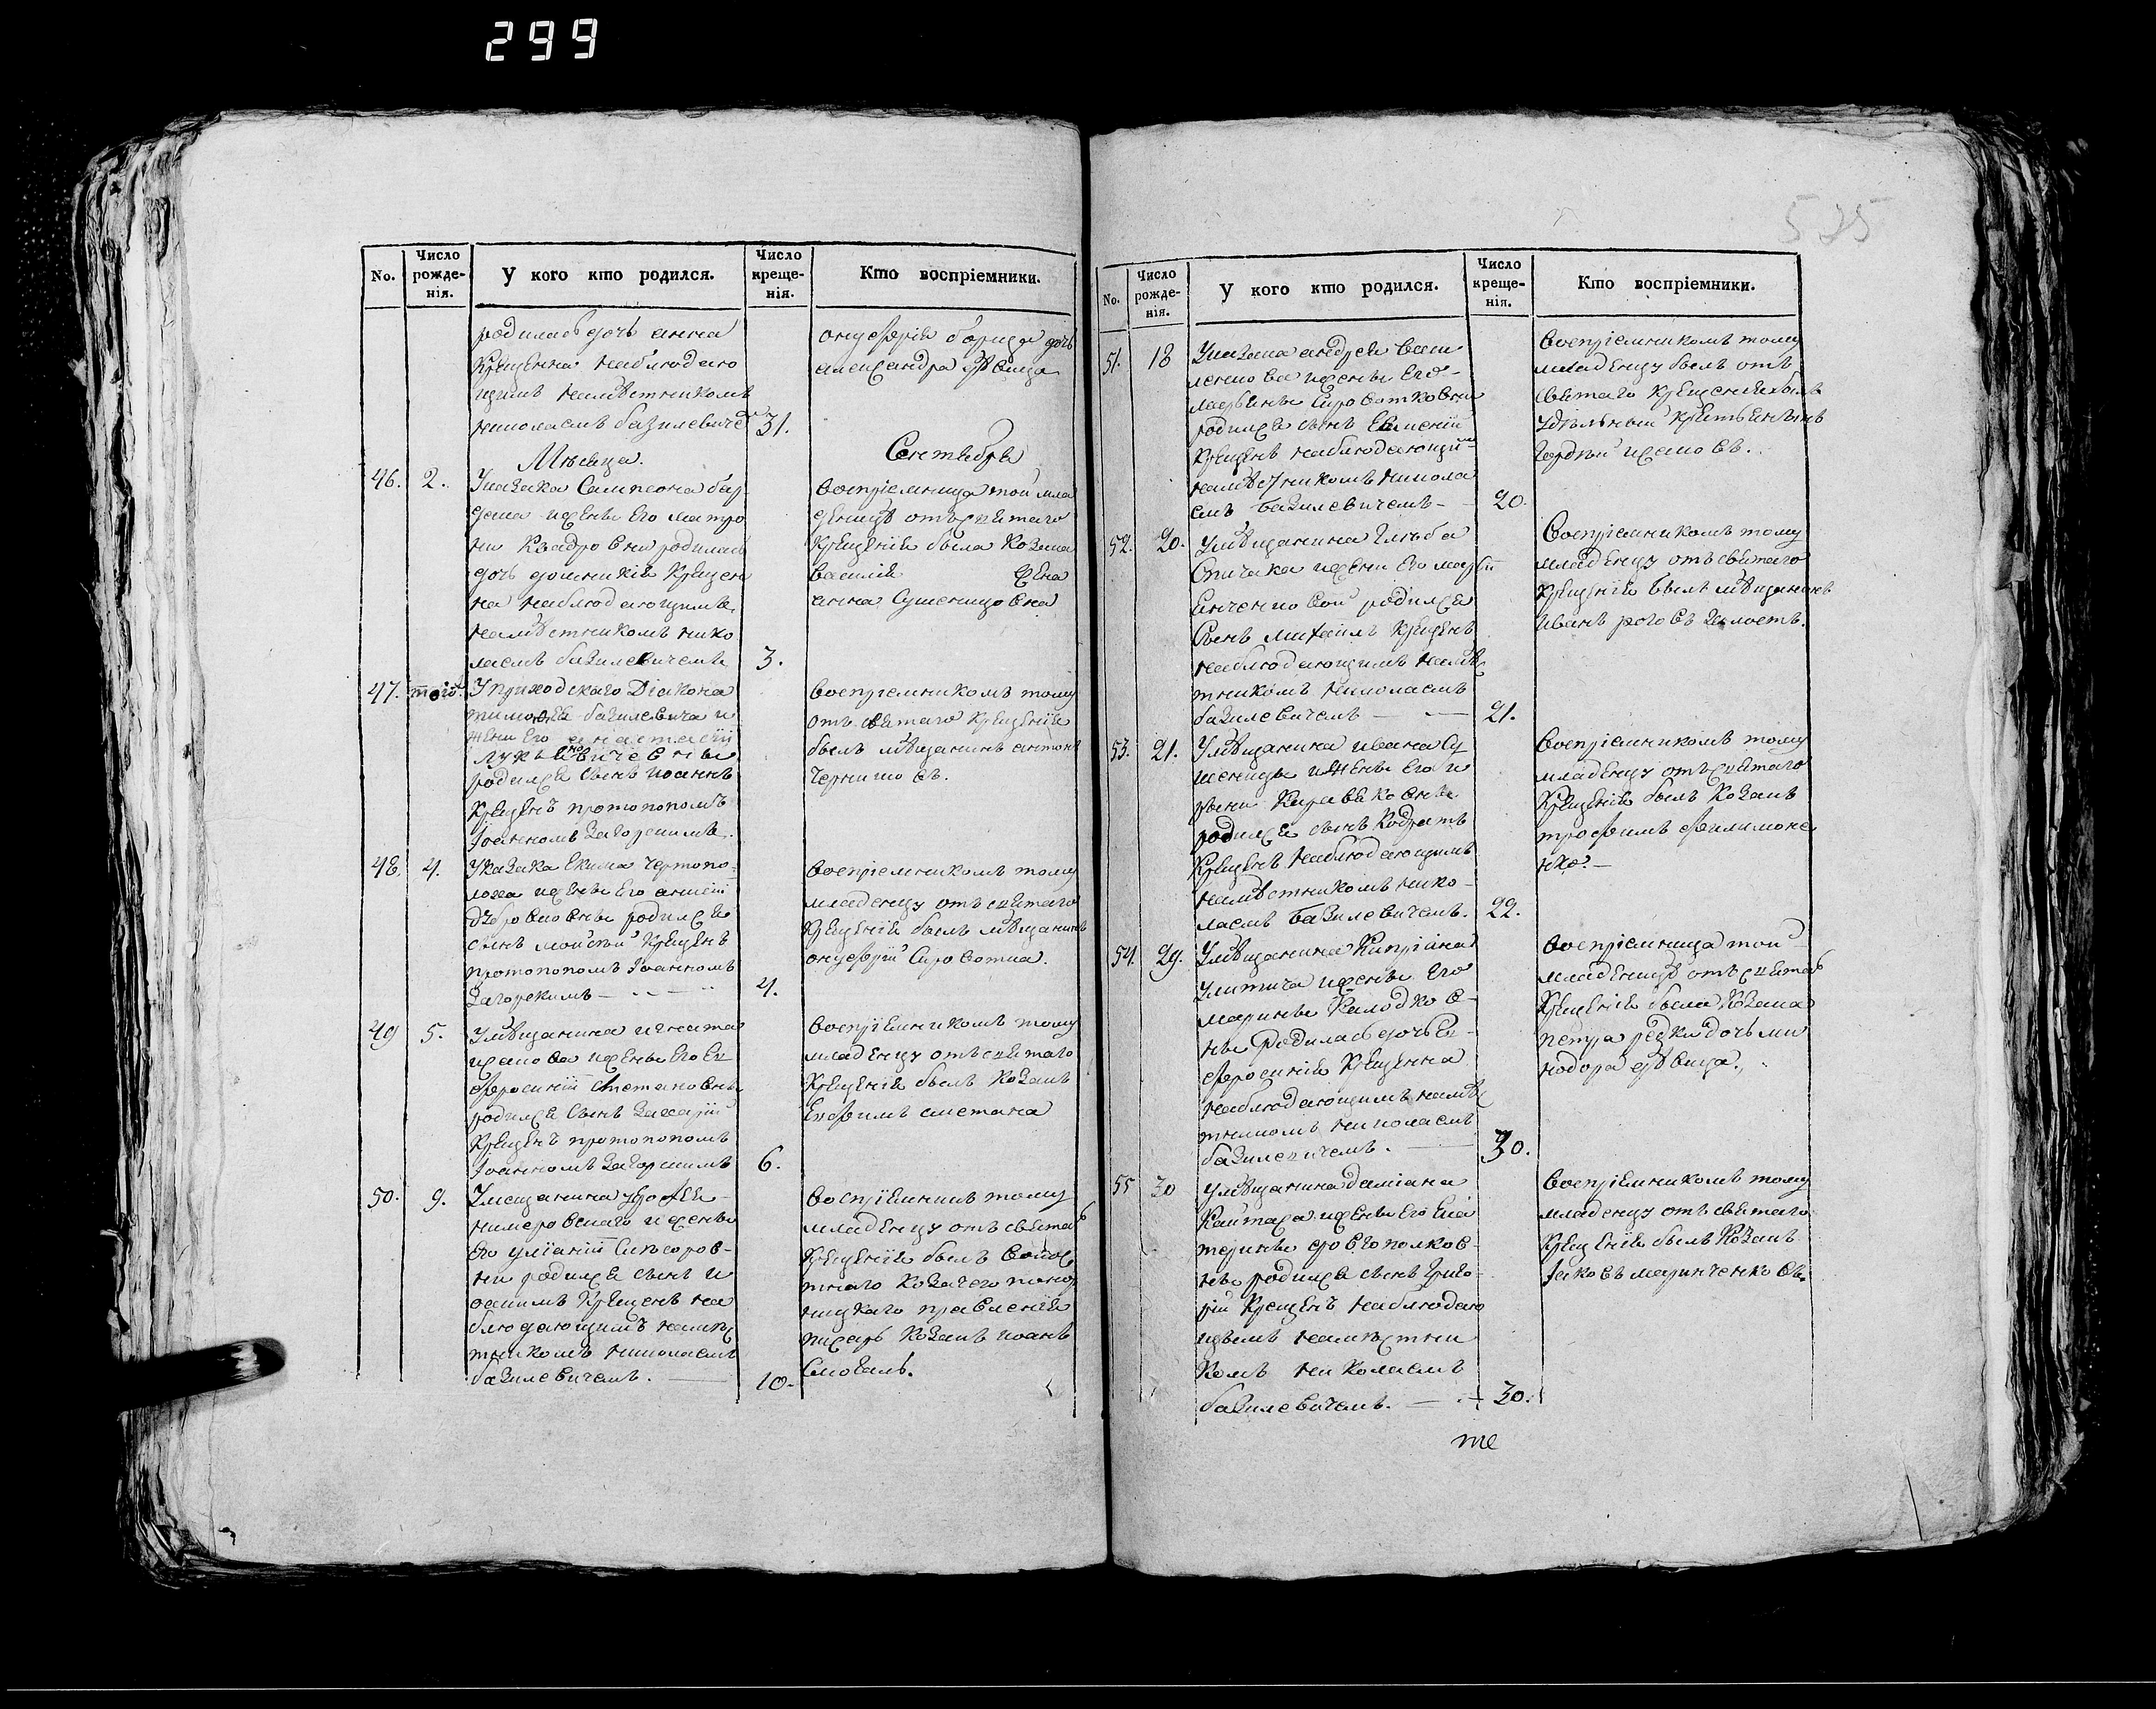 299
525
No.
Число рожде-нія.
У кого кто родился.
Число креще-нія.
Кто воспріемники.
родилась дочь анна
крещенна наблюдаю
щимъ намѣстникомъ
николаемъ базилевиче 31.
онуфрія борща дочь
александра дѣвица
Мѣсяца. Сентября
46. 2.
Указака Сампсона бар
даша ижены Его матро
ни Квадровни родилась
дочь домникія Крещен
на наблюдающимъ
намѣстникомъ нико
лаемъ базилевичемъ 3.
воспріемница той мла
деницѣ отъ святаго
крещенія была козака
василія жена
анна Сушеницовна
47. тогоже
Уприходскаго Діакона
тимофея базилевича и
жени Его анастасіи
лукьяновичевны
родился сынъ иоаннъ
крещенъ протопопомъ
Іоанномъ Загорскимъ.
воспріемникомъ тому
отъ святаго крещенія
былъ мѣщанинъ антонъ
Черниковъ.
48. 4.
Указака Екима Чертопо
лоха ижены Его анни
дубровковны родился
сынъ мойсей крещенъ
протопопомъ Іоанномъ
Загорскимъ 4.
воспріемникомъ тому
младенцу отъ святаго
крещенія былъ мѣщанинъ
онуфрій Сыроватка.
49 5.
Умѣщанина игната
исакова ижены Его Ев
фросиніи Степановны
родился сынъ Захарій
крещенъ протопопомъ
Іоанномъ Загорскимъ 6.
воспріемникомъ тому
младенцу отъ святаго
крещенія былъ козакъ
Ефимъ сметана
50. 9.
Умещанина
ижены
Его уліаніи
ни родился сынъ и
оакимъ крещенъ на
блюдающимъ намѣс
тникомъ николаемъ
базилевичемъ. 10.
воспріемникъ тому
младенцу отъ святаго
крещенія былъ
козачего
правленія
писарь козакъ иоанъ
Сковаль.
No.
Число рожде-нія.
У кого кто родился.
Число креще-нія.
Кто воспріемники.
51. 18
Указака андрея васи
ленкова ижены Его
марьяны Сыроватковны
родился сынъ Евменій
крещенъ наблюдающим
намѣстникомъ никола
емъ базилевичемъ 20.
воспріемникомъ тому
младенцу былъ отъ
святаго крещенія былъ
удѣльный крестьянинъ
Гордѣй исаковъ.
52. 20.
Умѣщанина глѣба
Спичака ижени Его маріи
родился
Сынъ михаилъ крещенъ
наблюдающимъ намѣс
тникомъ николаемъ
базилевичемъ 21.
воспріемникомъ тому
младенцу отъ святаго
крещенія былъ мѣщанинъ
иванъ
53. 21.
Умѣщанина ивана Су
шеницы ижены Его и
рыни Каравековны
родился сынъ Кодратъ
крещенъ наблюдающимъ
намѣстникомъ нико
лаемъ базилевичемъ. 22.
воспріемникомъ тому
младенцу отъ святаго
крещенія былъ козакъ
трофимъ филимоне
нко.
54. 29.
Умѣщанина Кипріана
Улитича ижены Его
марины Калодков
ны родилась дочь Ев
фросинія крещенна
наблюдающимъ намѣс
тникомъ николаемъ
базилевичемъ. 30.
воспріемница той
младеницѣ отъ святаго
крещенія была козака
петра редки дочь ми
нодора дѣвица.
55 30
Умѣщанина даміана
Каитаза ижены Его Ека
терины
ны родился сынъ Григо
рій крещенъ наблюдаю
щымъ намѣстни
комъ николаемъ
базилевичемъ. 30.
воспріемникомъ тому
младенцу отъ святаго
крещенія былъ козакъ
Іаковъ маринченковъ.
те